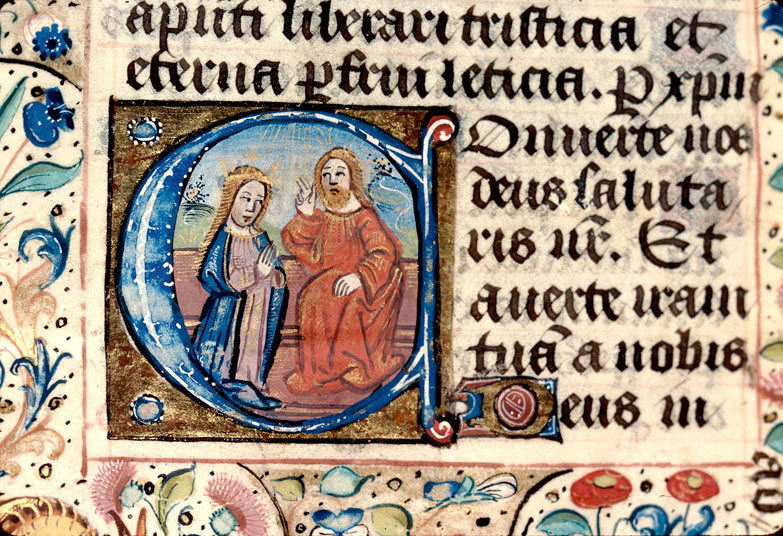 a pn̄ti liberari tristicia et
eterna ꝑfrui leticia. P xp̄m
Conuerte nos
deus saluta
ris nr̄. Et
auerte iram
tuā a nobis
Deus in
ad